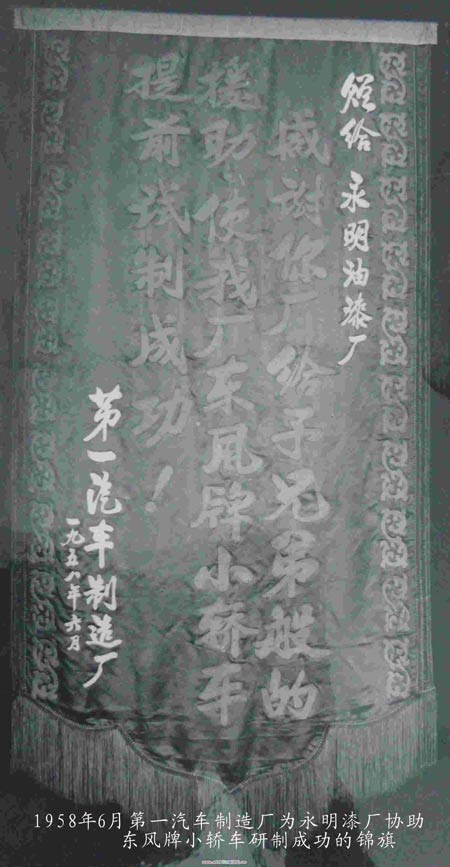 赠给 永明油漆厂
感谢你厂给予兄弟般的
援助、使我厂东风牌小轿车
提前试制成功！
第一汽车制造厂
一九五八年六月
1958年6月第一汽车制造厂为永明漆厂协助
东风牌小轿车研制成功的锦旗